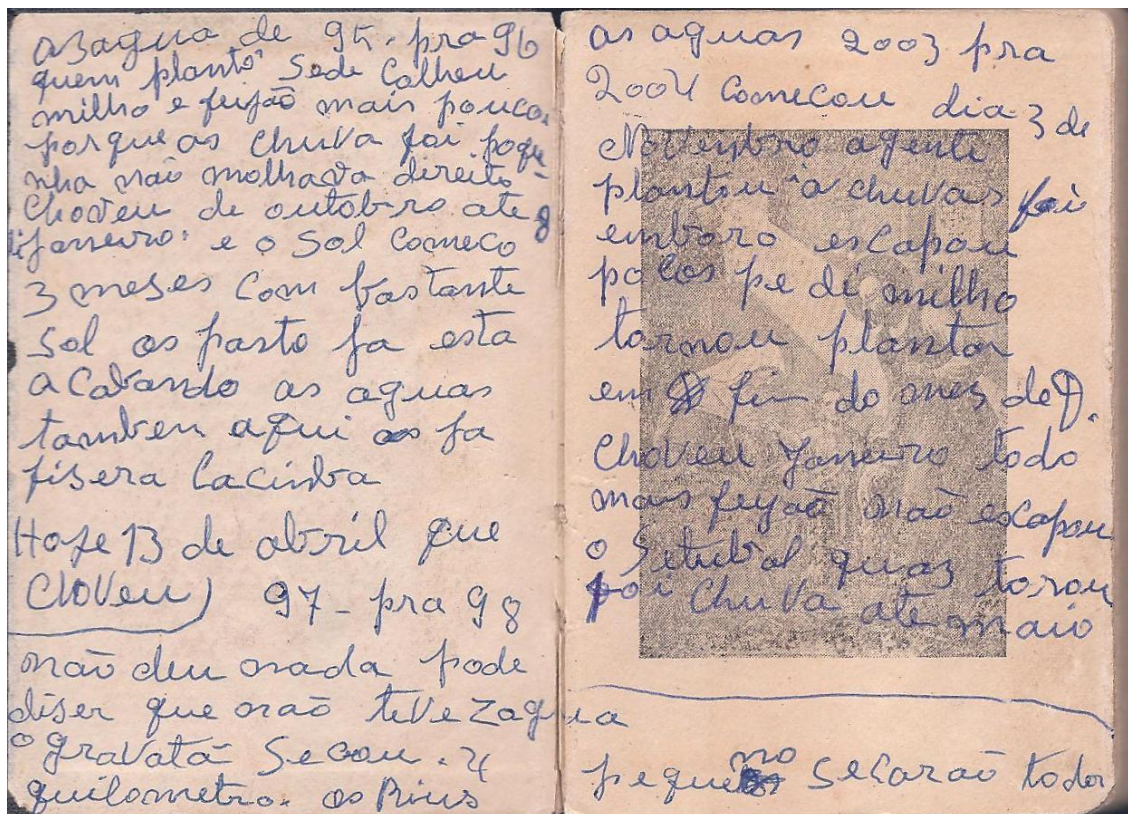 as agua de 95. pra 96
quem planto Sede Colheu
milho e feijão mais pouco.
porque as chuva foi peque
nha não molhava direito
choveu de outobro ate 8
di janneiro. e o Sol Começo
3 meses com bastante
Sol os pasto ja esta
acabando as aguas
tamben aqui as ja
fisera Cacinba
Hoje 13 de abril que
choveu) 97 - pra 98
não deu nada pode
diser que não teve zagua
o gravatá Secou. 4
quilometro. os Rius
as aguas 2003 pra
2004 Comecou dia 3 de
Novenbro agente
plantou a chuvas foi
emboro escapou
pocos pe di milho
tornou plantar
em fim do mes de D.
choveu Janneiro todo
mais feijão não escapou
o Setubal quaz torou
foi chuva ate maio
pequeno Secarão todos